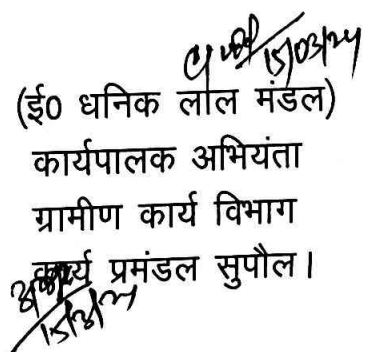 15/03/24
(ई0 धनिक लाल मंडल)
कार्यपालक अभियंता
ग्रामीण कार्य विभाग
कार्य प्रमंडल सुपौल।
15/3/24